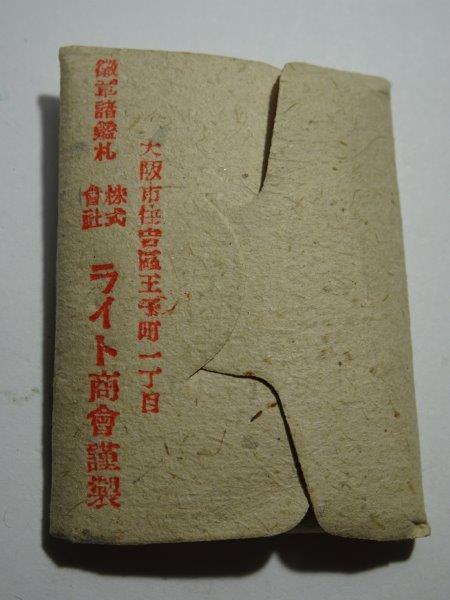 大阪市住吉區王子町一丁目
徽章諸鑑札 株式會社 ライト商會謹製